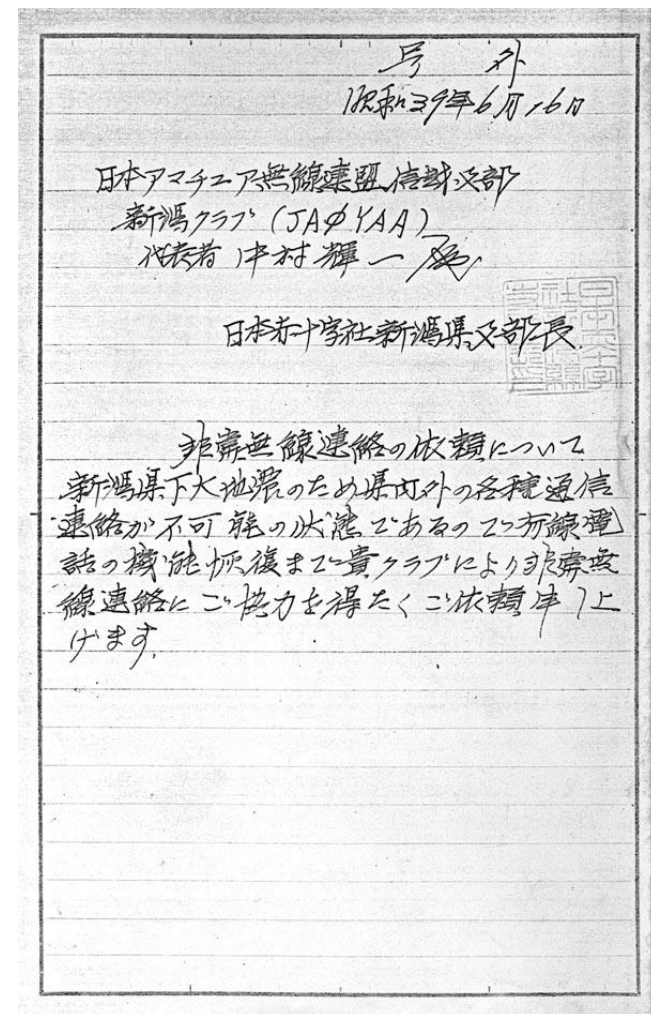 号外
昭和39年6月16日
日本アマチュア無線連盟信越支部
新潟クラブ(JAØYAA)
代表者 中村輝一殿
日本赤十字社新潟県支部長
非常無線連絡の依頼について
新潟県下大地震のため県内外の各種通信
連絡が不可能の状態であるので有線電
話の機能恢復まで貴クラブにより非常無
線連絡にご協力を得たくご依頼申し上
げます.